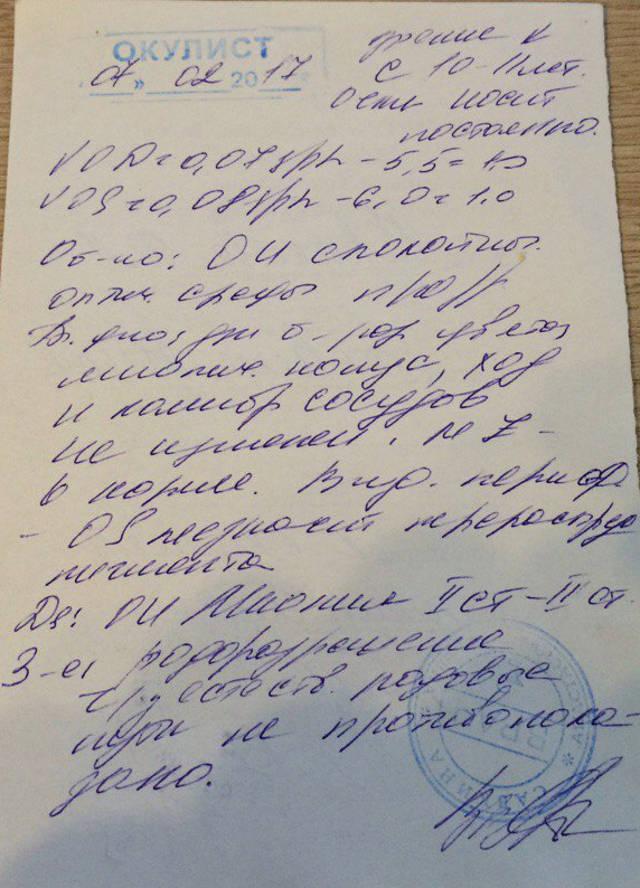 ОКУЛИСТ
07 » 02 2017
зрение ↓
с 10-11 лет.
Очки носит
постоянно.
VOD=0,07 sph -5,5=1,0
VOS=0,08 sph -6,0=1.0
Об-но: OU спокойны.
оптич. среды
Гл. дно: б-роз цвета,
миопич. конус, ход
и калибр сосудов
не изменен.
в норме. Вид. периф
- OS перераспред
пигмента
Ds: OU Миопия II ст - II ст.
З-е: родоразрешение
ч/з естеств. родовые
пути не противопока-
зано.